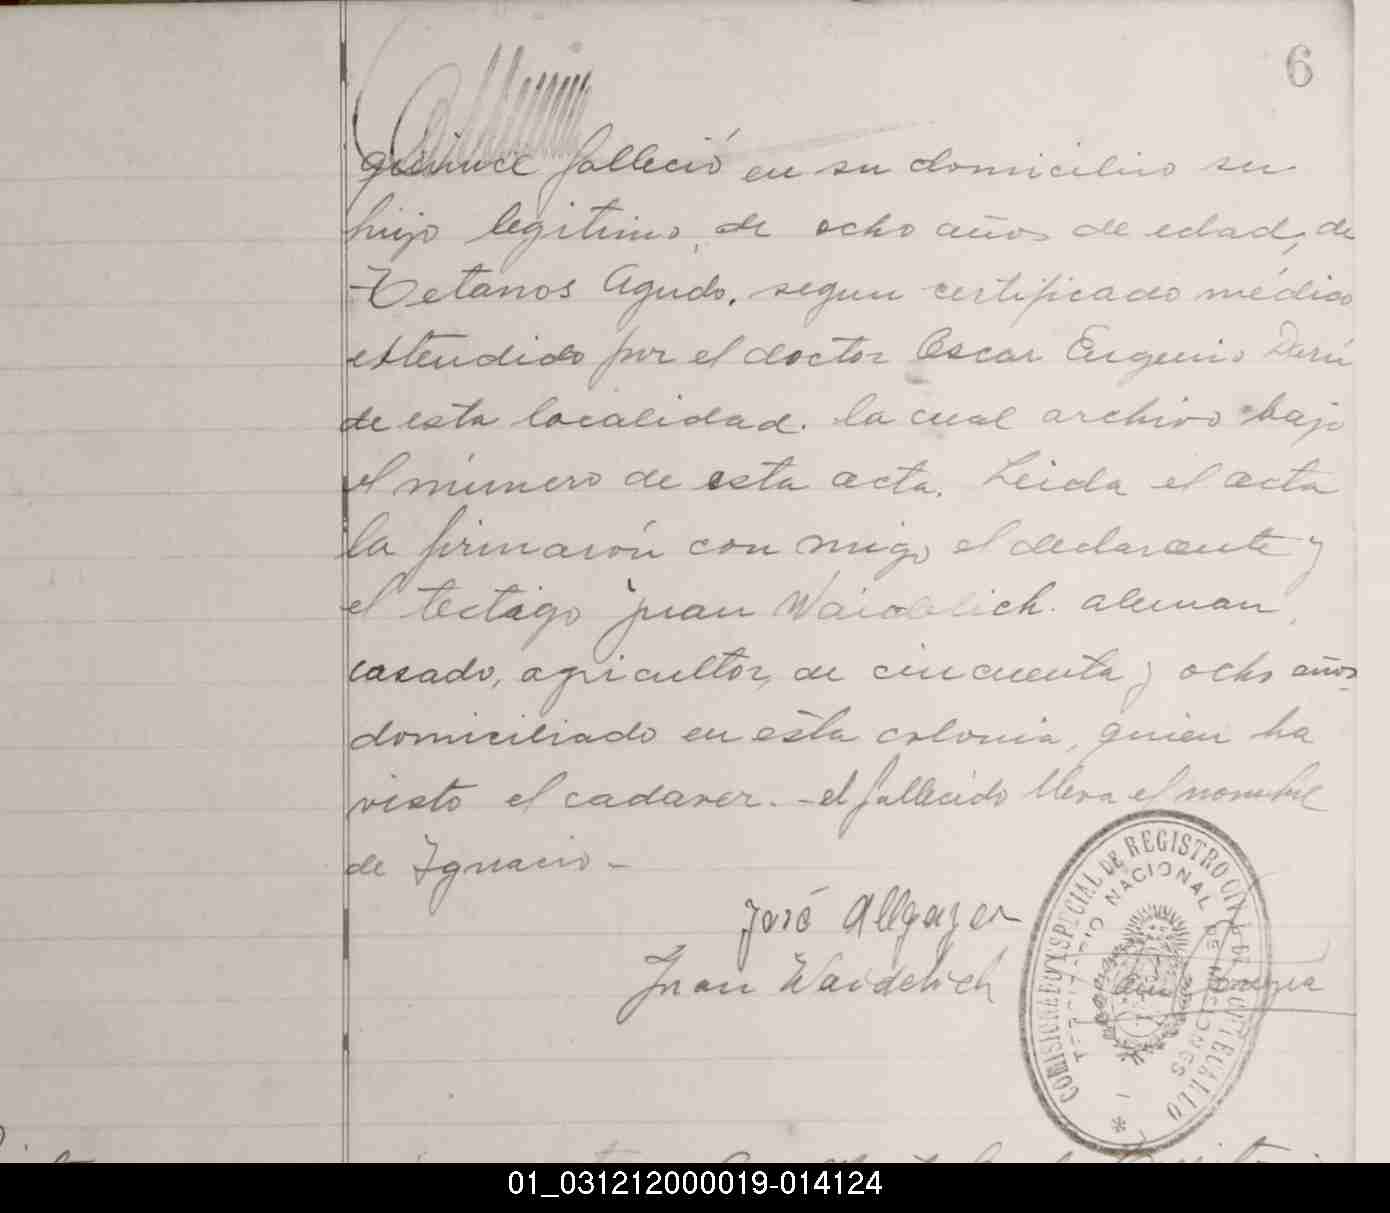 6
quince falleció en su domicilio su
hijo legitimo, de ocho años de edad, de
Tetanos Agudo, segun certificado médico
extendido por el doctor Oscar Eugenio Darú
de esta localidad. la cual archivo bajo
el número de esta acta. Leida el acta
la firmarón con migo el declarante y
el testigo Juan Waidelich. aleman,
casado, agricultor, de cincuenta y ocho años
domiciliado en ésta colonia, quien ha
visto el cadaver. - el fallecido lleva el nombre
de Ignacio -
José Allgazer
Juan Waidelich
ESPECIAL DE REGISTRO CIVIL DE
TERRITORIO NACIONAL DE MISIONES
01_031212000019-014124